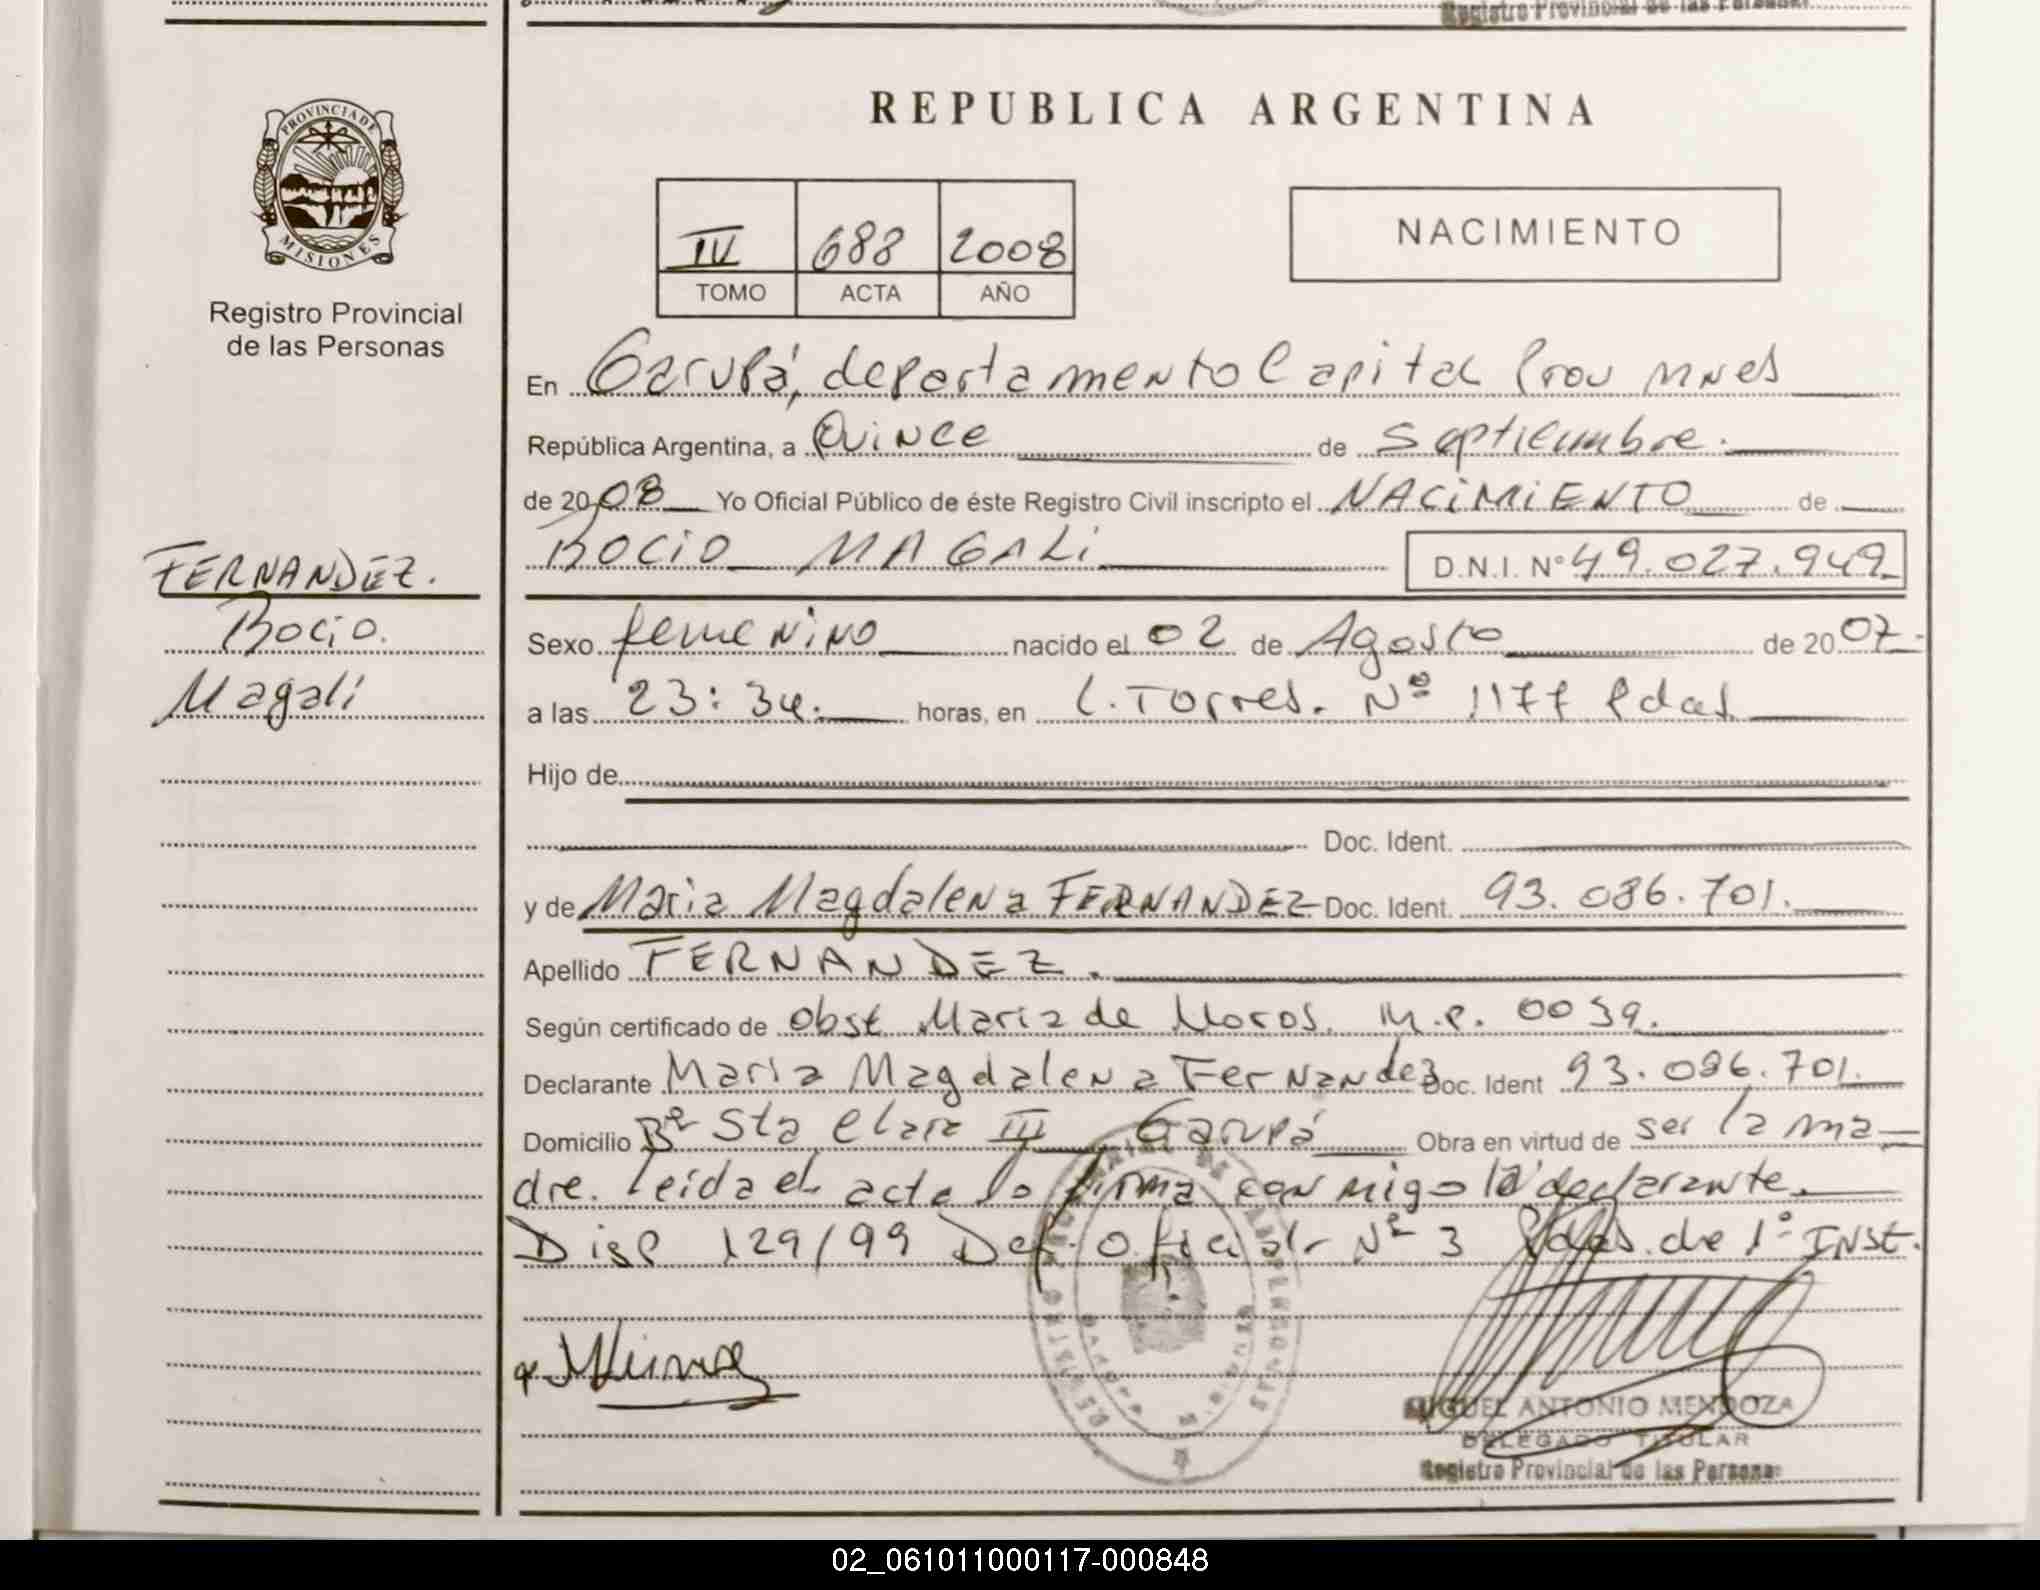 Registro Provincial de las Personas
REPUBLICA ARGENTINA
PROVINCIA DE
MISIONES
Registro Provincial
de las Personas
IV 688 2008
TOMO ACTA AÑO
NACIMIENTO
En Garupá, departamento Capital Prov Mnes
República Argentina, a Quince de septiembre.
de 2008 Yo Oficial Público de éste Registro Civil inscripto el NACIMIENTO de
ROCIO MAGALI D.N.I. Nº 49.027.949
FERNANDEZ.
Rocio.
Magali
Sexo femenino nacido el 02 de Agosto de 2007.
a las 23:34. horas, en L. Torres. Nº 1177 Pdas.
Hijo de
Doc. Ident.
y de Maria Magdalena FERNANDEZ Doc. Ident. 93.086.701.
Apellido FERNANDEZ.
Según certificado de obst Maria de Moros. M.P. 0039.
Declarante Maria Magdalena Fernandez Doc. Ident 93.086.701.
Domicilio Bº Sta Clara III Garupá Obra en virtud de ser la ma
dre. leida el acta lo firma conmigo la declarante.
Disp 129/99 Def. Oficial Nº 3 Pdas. de 1º INst.
MIGUEL ANTONIO MENDOZA
DELEGADO TITULAR
Registro Provincial de las Personas
02_061011000117-000848